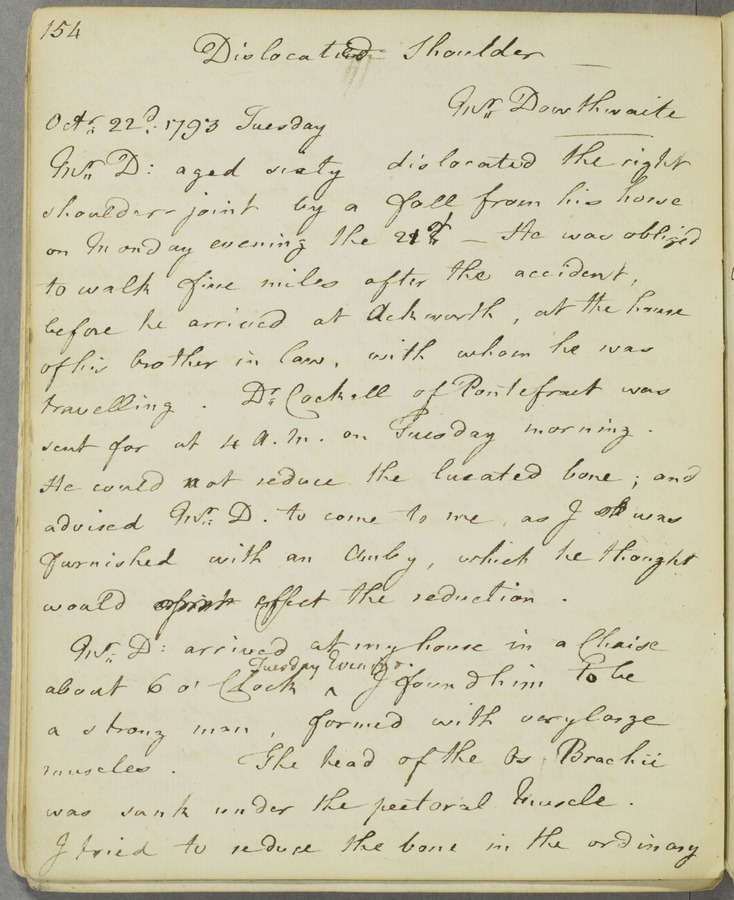 154
Dislocated Shoulder
Mr. Dowthwaite
Octr. 22d. 1793 Tuesday
Mr. D: aged sixty dislocated the right
shoulder joint by a fall from his horse
on Monday evening the 21st — He was obliged
to walk five miles after the accident,
before he arrived at Ackworth, at the house
of his brother in law, with whom he was
travelling. Dr. Cockell of Pontefract was
sent for at 4 A.M. on Tuesday morning.
He could not reduce the luxated bone; and
advised Mr. D. to come to me, as I was
furnished with an Amby, which he thought
would effect the reduction.
Mr. D: arrived at my house in a Chaise
Tuesday Evening.
about 6 o' Clock ^ I found him to be
a strong man, formed with very large
muscles. The head of the Os Brachii
was sunk under the pectoral Muscle.
I tried to reduce the bone in the ordinary